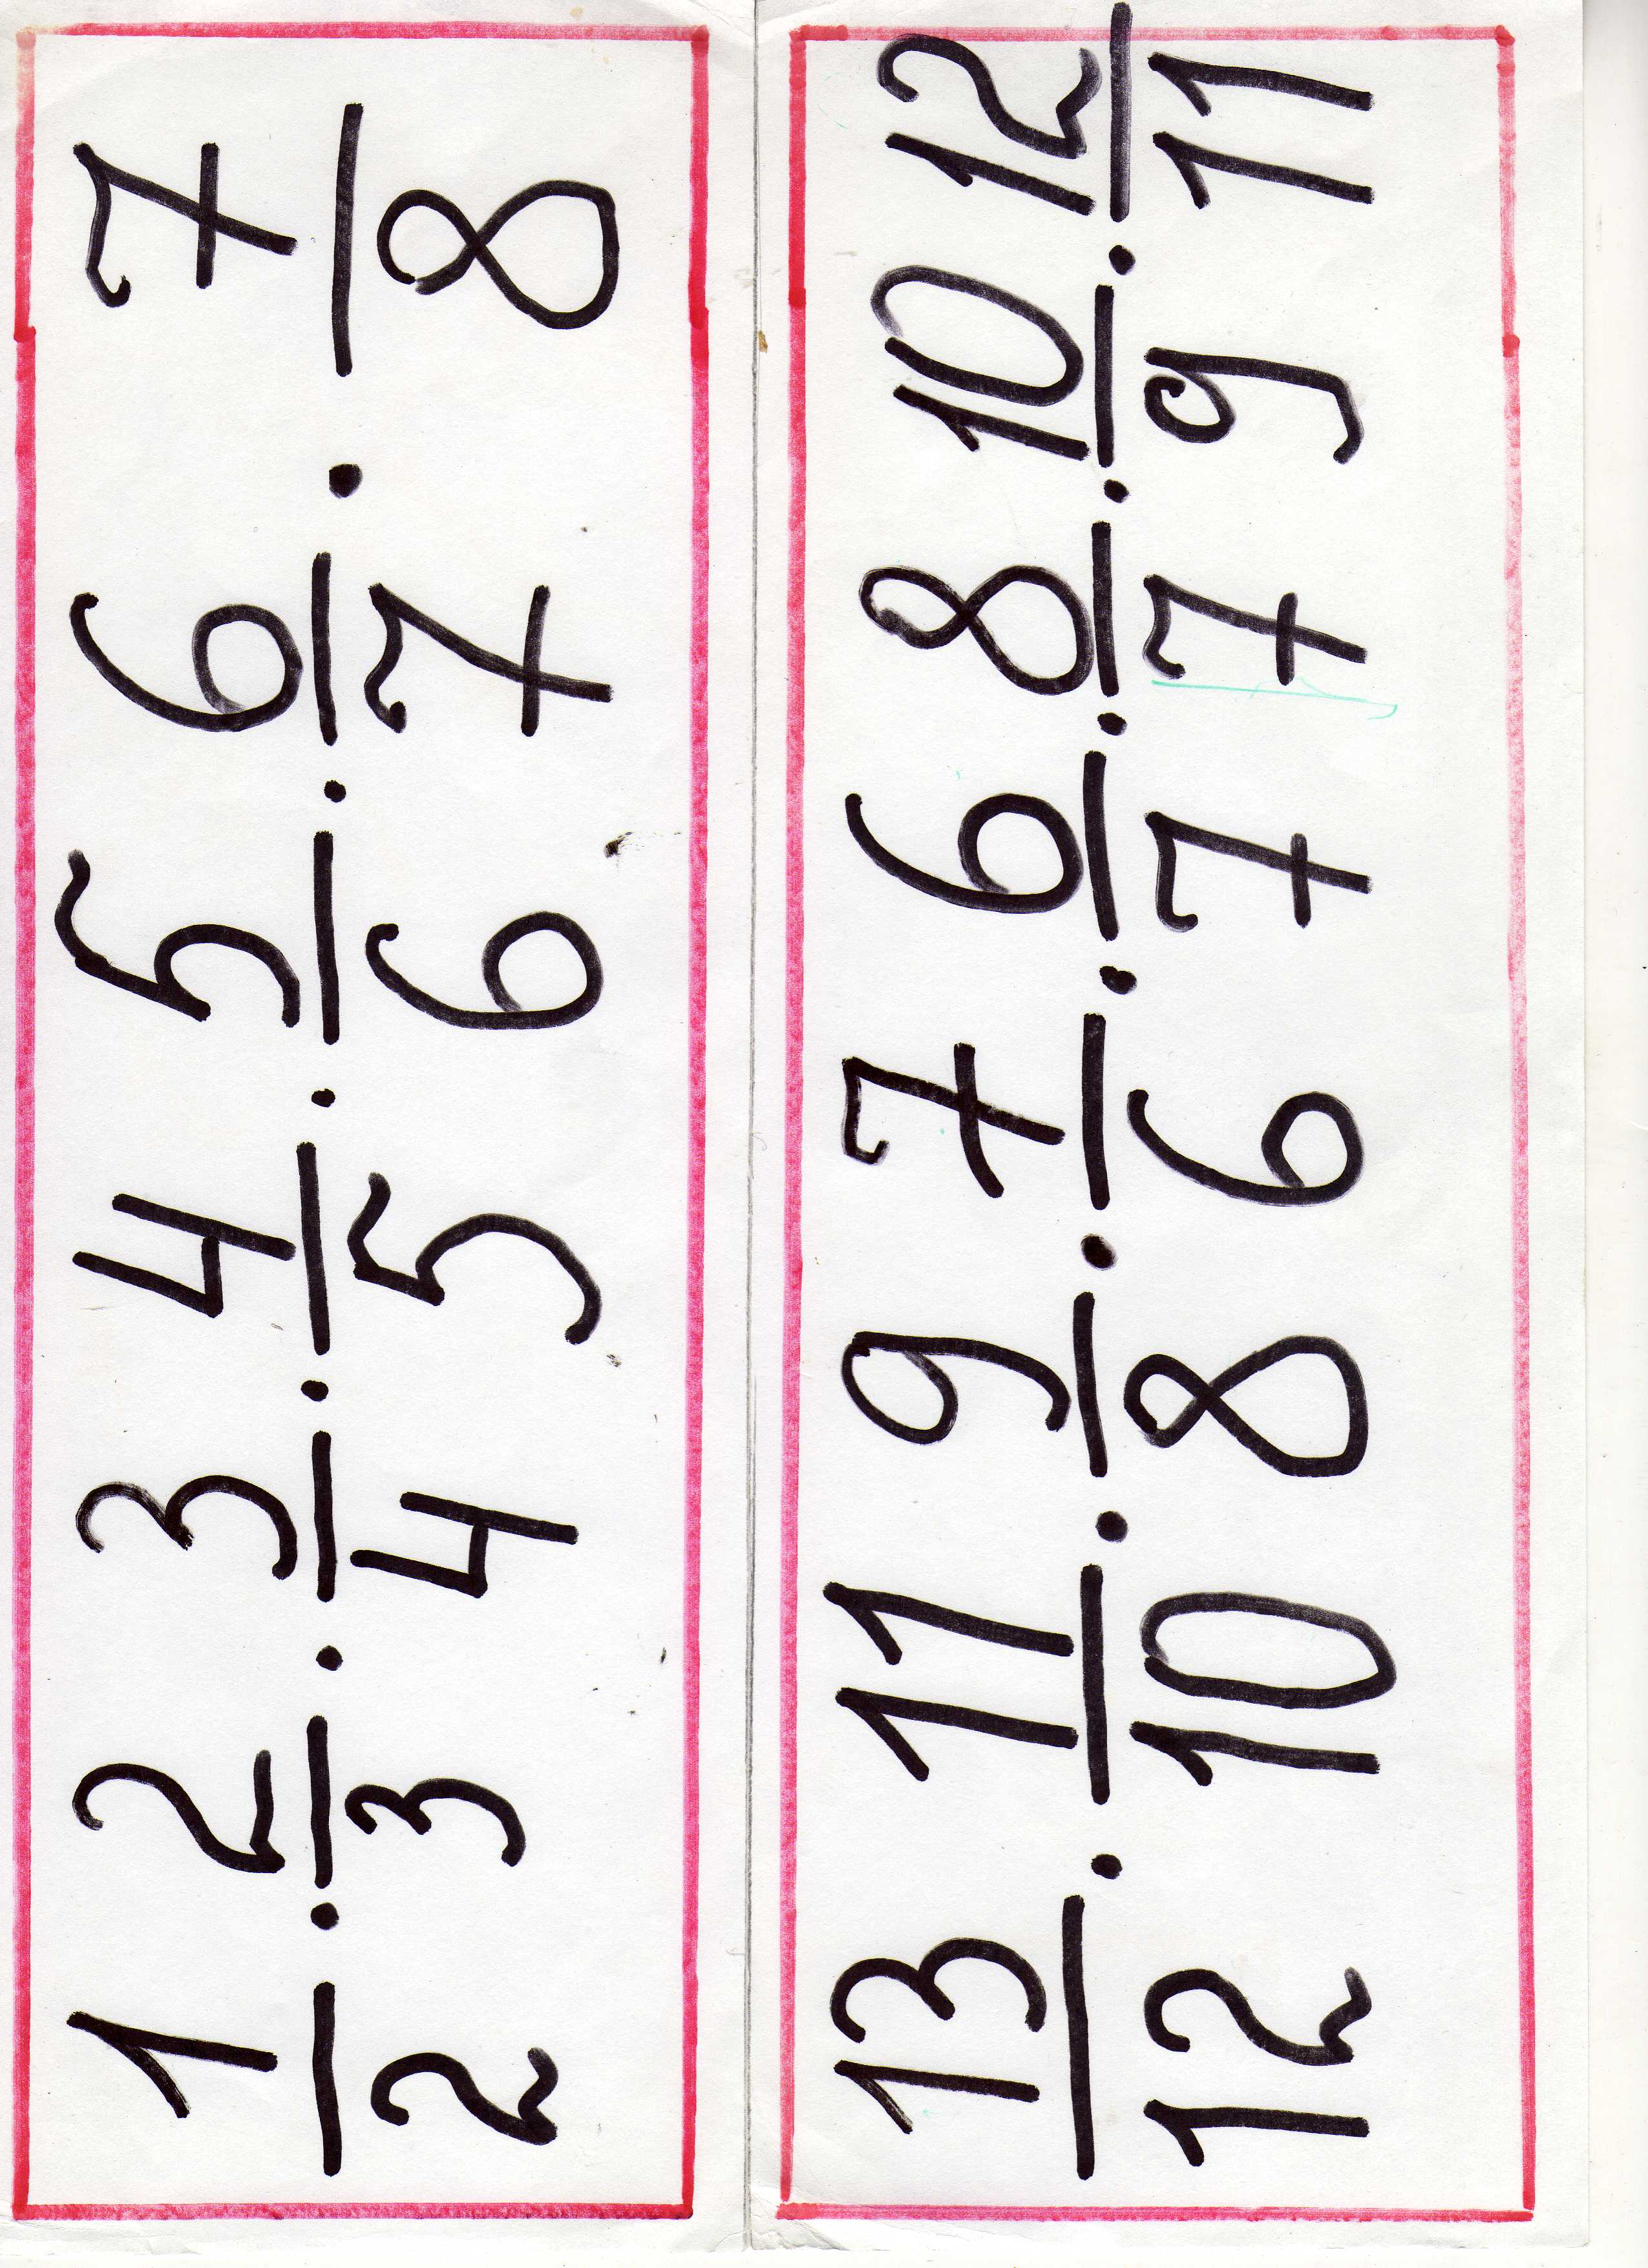 1/2 · 2/3 · 3/4 · 4/5 · 5/6 · 6/7 · 7/8
13/12 · 11/10 · 9/8 · 7/6 · 6/7 · 8/7 · 10/9 · 12/11